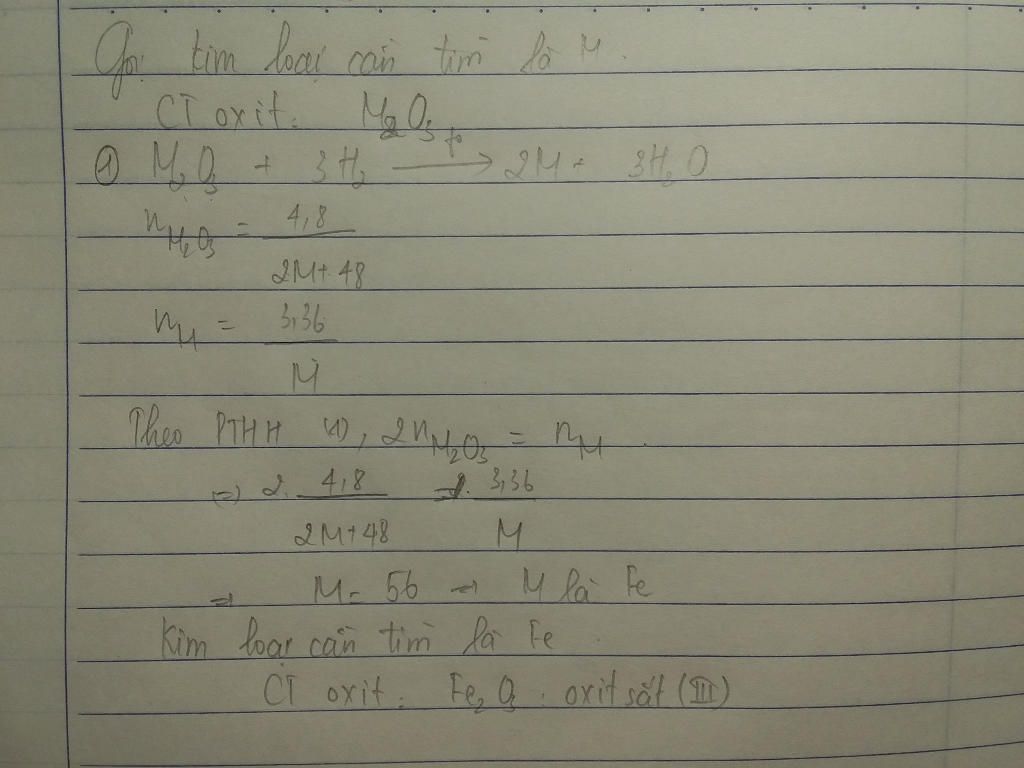 Gọi kim loại cần tìm là M.
CT oxit: M₂O₃
① M₂O₃ + 3H₂ —t°→ 2M + 3H₂O
n_M₂O₃ = 4,8 / (2M+48)
n_M = 3,36 / M
Theo PTHH (1), 2n_M₂O₃ = n_M.
=> 2. 4,8 / (2M+48) = 3,36 / M
=> M = 56 → M là Fe
Kim loại cần tìm là Fe.
CT oxit: Fe₂O₃: oxit sắt (III)